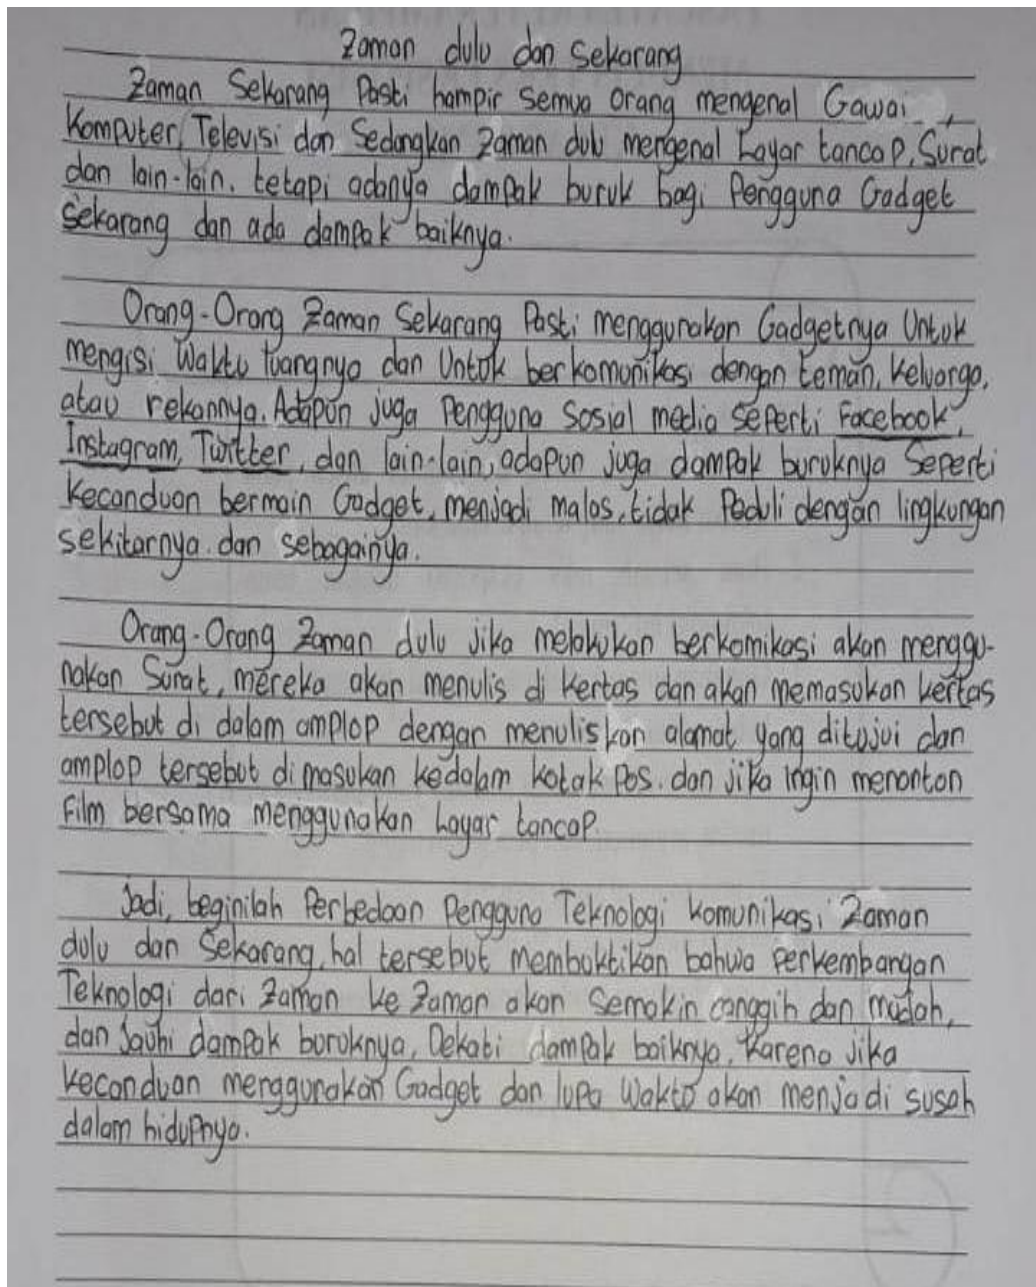 Zaman dulu dan Sekarang
Zaman Sekarang Pasti hampir Semua orang mengenal Gawai,
Komputer, Televisi dan Sedangkan Zaman dulu mengenal Layar tancap, Surat
dan lain-lain. tetapi adanya dampak buruk bagi Pengguna Gadget
Sekarang dan ada dampak baiknya.
Orang-Orang Zaman Sekarang Pasti menggunakan Gadgetnya Untuk
mengisi Waktu luangnya dan Untuk berkomunikasi dengan teman, keluarga,
atau rekannya. Adapun juga Pengguna Sosial media Seperti Facebook,
Instagram, Twitter, dan lain-lain, adapun juga dampak buruknya Seperti
kecanduan bermain Gadget, menjadi malas, tidak Peduli dengan lingkungan
sekitarnya. dan sebagainya.
Orang-Orang Zaman dulu Jika melakukan berkomikasi akan menggu-
nakan Surat, mereka akan menulis di kertas dan akan memasukan kertas
tersebut di dalam amplop dengan menuliskan alamat yang ditujui dan
amplop tersebut di masukan kedalam kotak Pos. dan jika ingin menonton
Film bersama menggunakan Layar tancap.
Jadi, beginilah Perbedaan Pengguna Teknologi komunikasi Zaman
dulu dan Sekarang, hal tersebut membuktikan bahwa Perkembangan
Teknologi dari Zaman ke Zaman akan Semakin canggih dan mudah,
dan Jauhi dampak buruknya, Dekati dampak baiknya, Karena Jika
kecanduan menggunakan Gadget dan lupa Waktu akan menjadi susah
dalam hidupnya.